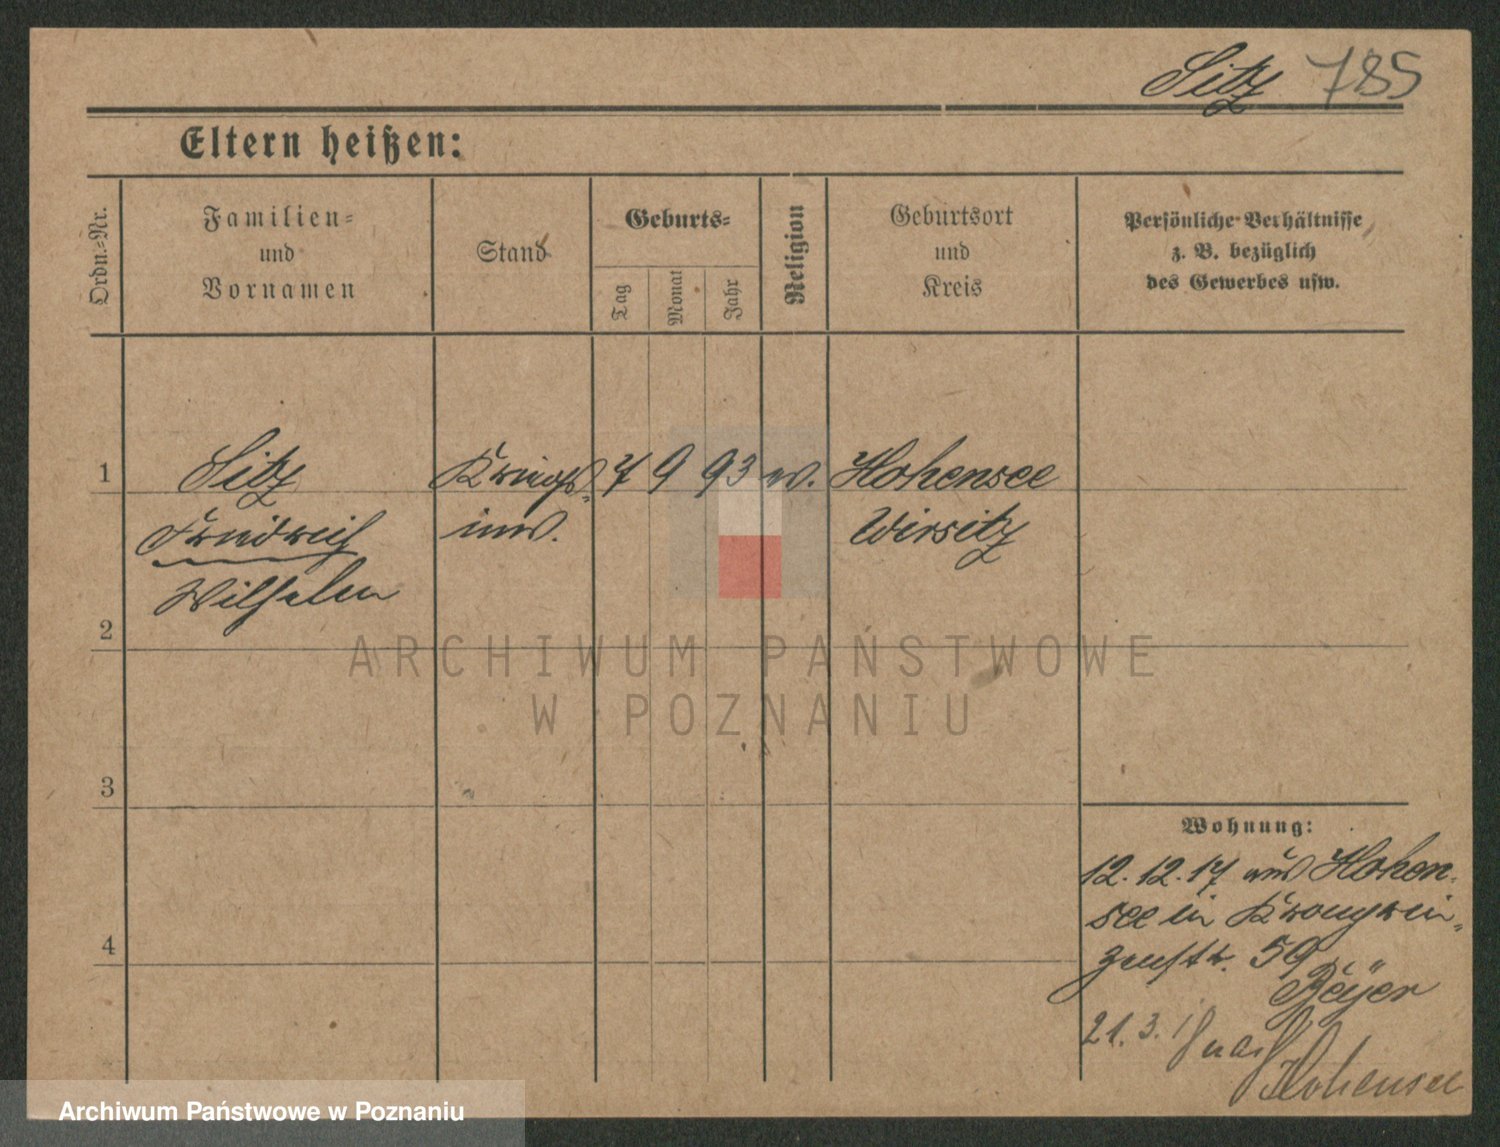 Sitz 785
Eltern heißen:
Ordn.-Nr.
Familien-
und
Vornamen
Stand
Geburts-
Tag
Monat
Jahr
Religion
Geburtsort
und
Kreis
Persönliche Verhältnisse
z. B. bezüglich
des Gewerbes usw.
1 Sitz Kriegs- 7 9 93 ev. Hohensee
Friedrich inv. Wirsitz
Wilhelm
2
3
4
Wohnung:
12.12.17 aus Hohen-
see in Kronprin-
zenstr. 59
Beyer
21.3. nach
Hohensee
ARCHIWUM PAŃSTWOWE
W POZNANIU
Archiwum Państwowe w Poznaniu